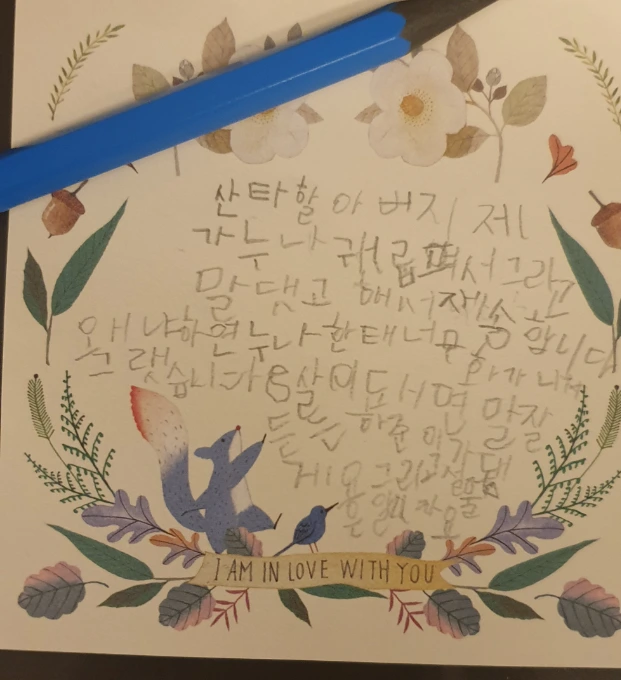 산타할아버지 제
가 누나 궤롭펴서 그라고
말댓고 해서 재송
왜냐하면 누나한태 너무 화가 나서
그랫습니다 8살이 되서면 말 잘
들는 준이가
게요 그리고 선물
은 자요
I AM IN LOVE WITH YOU